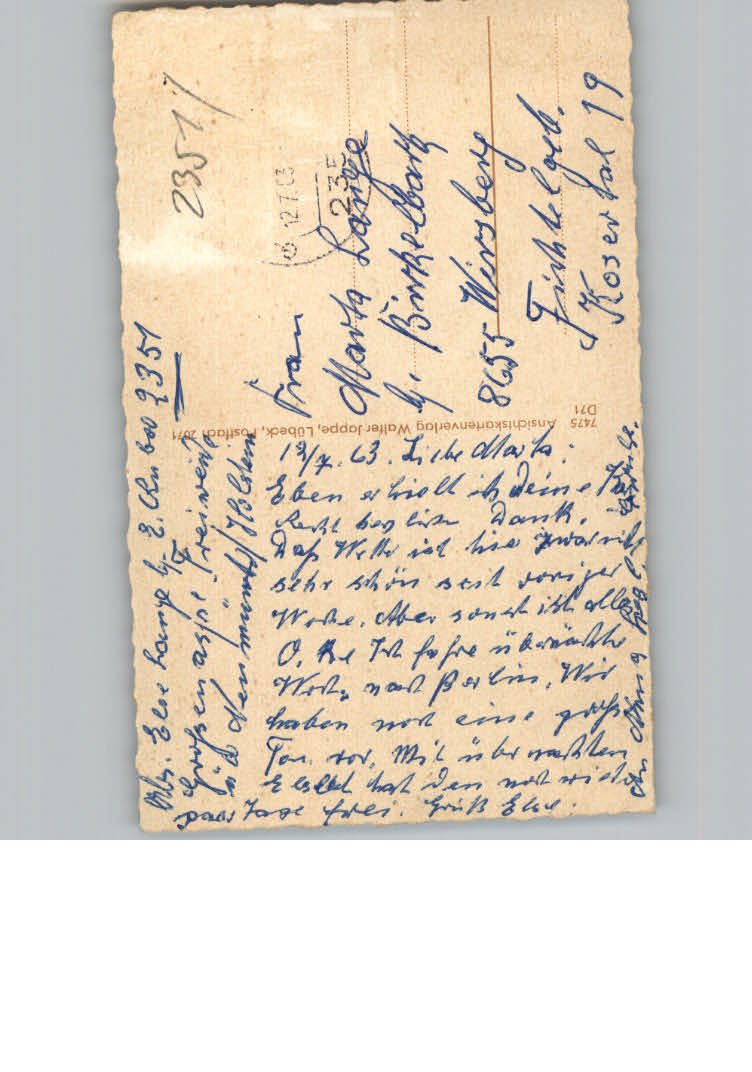 Abs. Else Lange b/. E. 2351
Großenaspe
über Neumünster/Holstein
12/7. 63. Liebe Marta:
Eben erhielt ich deine
Recht herzlichen Dank.
Daß Wetter ist hier zwar nicht
sehr schön seit voriger
Woche. Aber sonst ist alles
O. Ke Ich fahre übernächste
Woche nach Berlin. Wir
haben noch eine große
Tour vor. Mit übernachten
hat den noch
paar Tage frei. Gruß Else.
Ansichtskartenverlag Walter Jappe, Lübeck, Postfach 2071
7475
D71
2351
12.7.63
235
Frau
Marta Lange
b/. Birkelbach
8655 Wirsberg
Fichtelgeb.
Kosertal 19